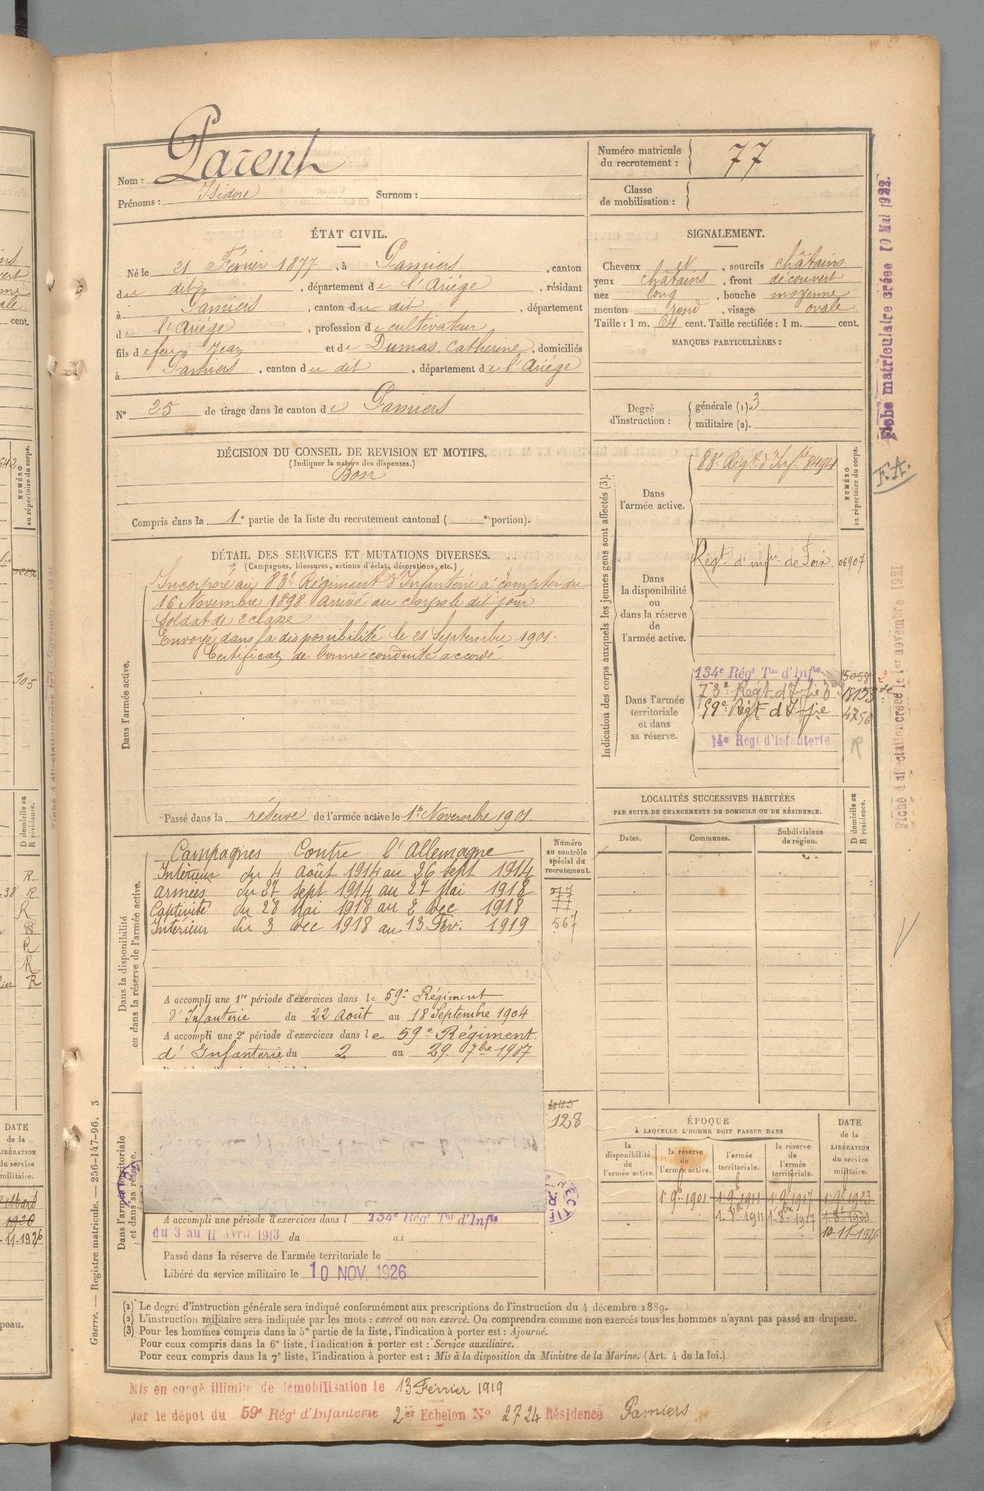 Nom : Parent
Prénoms : Isidore Surnom :
Numéro matricule du recrutement : 77
Classe de mobilisation :
ÉTAT CIVIL.
Né le 21 Février 1877, à Pamiers, canton
du dit, département de l'Ariège, résidant
à Pamiers, canton du dit, département
de l'Ariège, profession de cultivateur
fils de feu Jean et de Dumas, Catherine, domiciliés
à Pamiers, canton du dit, département de l'Ariège
N° 25 de tirage dans le canton de Pamiers
SIGNALEMENT.
Cheveux et, sourcils châtains
yeux châtains, front découvert
nez long, bouche moyenne
menton rond, visage ovale
Taille : 1 m. 64 cent. Taille rectifiée : 1 m. cent.
MARQUES PARTICULIÈRES :
Degré d'instruction : générale (1) 3
militaire (2).
DÉCISION DU CONSEIL DE REVISION ET MOTIFS.
(Indiquer la nature des dispenses.)
Bon
Compris dans la 1e partie de la liste du recrutement cantonal ( e portion).
DÉTAIL DES SERVICES ET MUTATIONS DIVERSES.
(Campagnes, blessures, actions d'éclat, décorations, etc.)
Dans l'armée active.
Incorporé au 83e Régiment d'Infanterie à compter du
16 Novembre 1898 arrivé au corps le dit jour
Soldat de 2e classe
Envoyé dans la disponibilité le 21 Septembre 1901.
Certificat de bonne conduite accordé
Passé dans la réserve de l'armée active le 1er Novembre 1901
Indication des corps auxquels les jeunes gens sont affectés (3).
NUMÉRO au répertoire du corps.
Dans l'armée active.
83e Régt d'Inf
Dans la disponibilité ou dans la réserve de l'armée active.
Régt d'infie de Foix 06907
Dans l'armée territoriale et dans sa réserve.
134e Régt Tal d'Infie 15058
73e Régt d'Infie 18153
59e Régt d'Infie 4756
14e Régt d'Infanterie R
LOCALITÉS SUCCESSIVES HABITÉES
PAR SUITE DE CHANGEMENTS DE DOMICILE OU DE RÉSIDENCE.
Dates. Communes. Subdivisions de région. D domicile ou R résidence.
Dans la disponibilité ou dans la réserve de l'armée active.
Numéro au contrôle spécial du recrutement.
Campagnes Contre l'Allemagne
Intérieur du 4 Août 1914 au 26 Sept 1914
Armées du 27 Sept 1914 au 27 Mai 1918
Captivité du 28 Mai 1918 au 2 Dec 1918
Intérieur du 3 Dec 1918 au 13 Fév. 1919
77
567
A accompli une 1re période d'exercices dans le 59e Régiment
d'Infanterie du 22 Août au 18 Septembre 1904
A accompli une 2e période d'exercices dans le 59e Régiment
d'Infanterie du 2 au 29 7bre 1907
128
Dans l'armée territoriale et dans sa réserve.
A accompli une période d'exercices dans l 134e Régt Tal d'Infie
du 3 au 11 Avril 1913 du au
Passé dans la réserve de l'armée territoriale le
Libéré du service militaire le 10 NOV. 1926
ÉPOQUE
À LAQUELLE L'HOMME DOIT PASSER DANS
la disponibilité de l'armée active. la réserve de l'armée active. l'armée territoriale. la réserve de l'armée territoriale. DATE de la LIBÉRATION du service militaire.
1 9bre 1901 1 9bre 1911 1 9bre 1917 1 9bre 1923
1 8bre 1911 1 8bre 1917
10-11-1926
(1) Le degré d'instruction générale sera indiqué conformément aux prescriptions de l'instruction du 4 décembre 1889.
(2) L'instruction militaire sera indiquée par les mots : exercé ou non exercé. On comprendra comme non exercés tous les hommes n'ayant pas passé au drapeau.
(3) Pour les hommes compris dans la 5e partie de la liste, l'indication à porter est : Ajourné.
Pour ceux compris dans la 6e liste, l'indication à porter est : Service auxiliaire.
Pour ceux compris dans la 7e liste, l'indication à porter est : Mis à la disposition du Ministre de la Marine. (Art. 4 de la loi.)
Mis en congé illimité de démobilisation le 13 Février 1919
par le dépôt du 59e Régt d'Infanterie 2er Echelon No 2724 Résidence Pamiers
Guerre. — Registre matricule. — 256-147-96. 3
Fiche matriculaire créée 10 Mai 1922.
F.A.
Fiche d'affectation créée le 1er novembre 1921
DATE
de la
LIBÉRATION
du service
militaire.